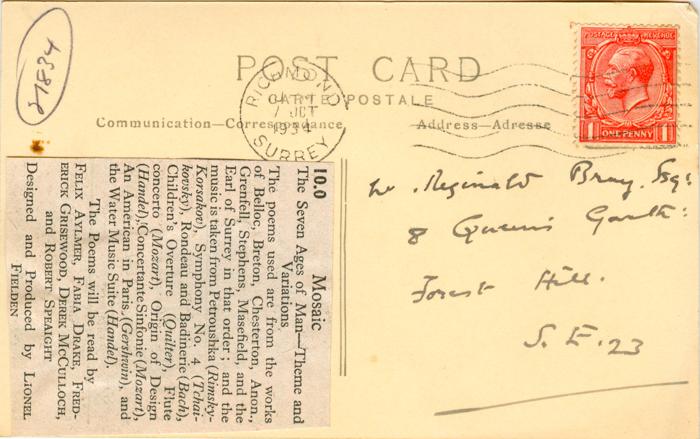 21834
POST CARD
CARTE POSTALE
Communication—Correspondance
Address—Adresse
RICHMOND
7 OCT
1934
SURREY
POSTAGE REVENUE
ONE PENNY
W. Reginald Bray. Esq:
8 Queens Garth:
Forest Hill.
S. E. 23
Mosaic
10.0
The Seven Ages of Man—Theme and
Variations
The poems used are from the works
of Belloc, Breton, Chesterton, Anon.,
Grenfell, Stephens, Masefield, and the
Earl of Surrey in that order; and the
music is taken from Petroushka (Rimsky-
Korsakov), Symphony No. 4 (Tchai-
kovsky), Rondeau and Badinerie (Bach),
Children's Overture (Quilter), Flute
concerto (Mozart), Origin of Design
(Handel), Concertante Sinfonie (Mozart),
An American in Paris (Gershwin), and
the Water Music Suite (Handel).
The Poems will be read by
FELIX AYLMER, FABIA DRAKE, FRED-
ERICK GRISEWOOD, DEREK MCCULLOCH,
and ROBERT SPEAIGHT
Designed and Produced by LIONEL
FIELDEN